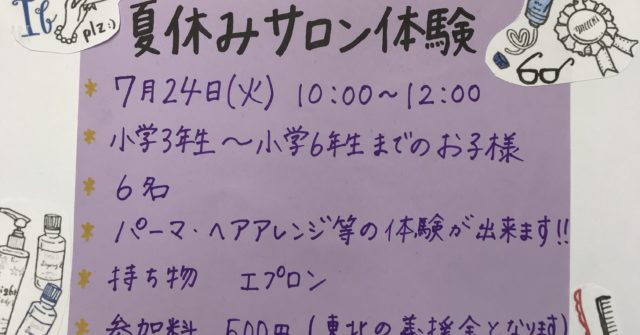 plz:)
夏休みサロン体験
* 7月24日(火) 10:00~12:00
* 小学3年生~小学6年生までのお子様
* 6名
* パーマ・ヘアアレンジ等の体験が出来ます!!
* 持ち物 エプロン
* 参加料 500円(東北の義援金となります)